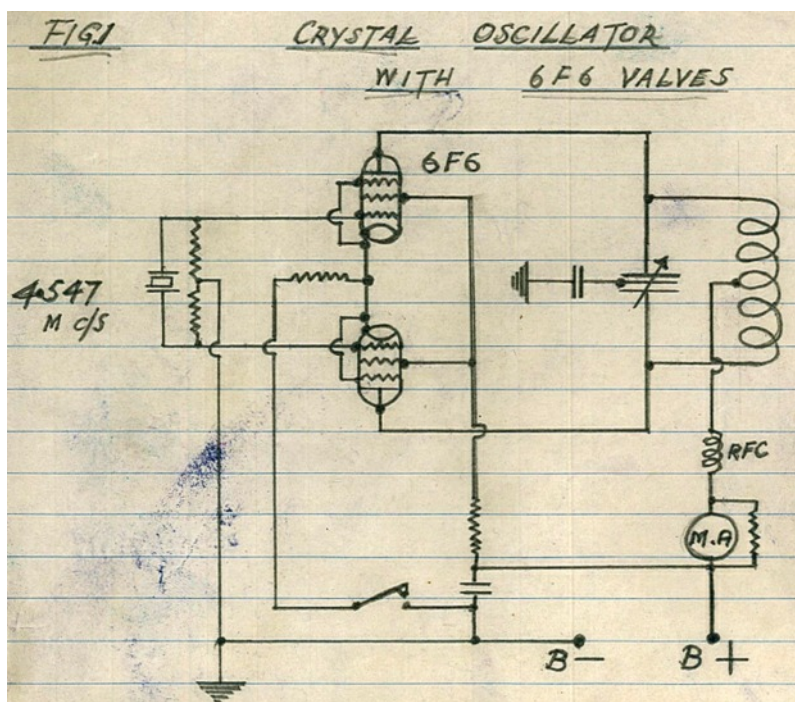 FIG1 CRYSTAL OSCILLATOR
WITH 6F6 VALVES
6F6
4.547
M C/S
RFC
M.A
B- B+